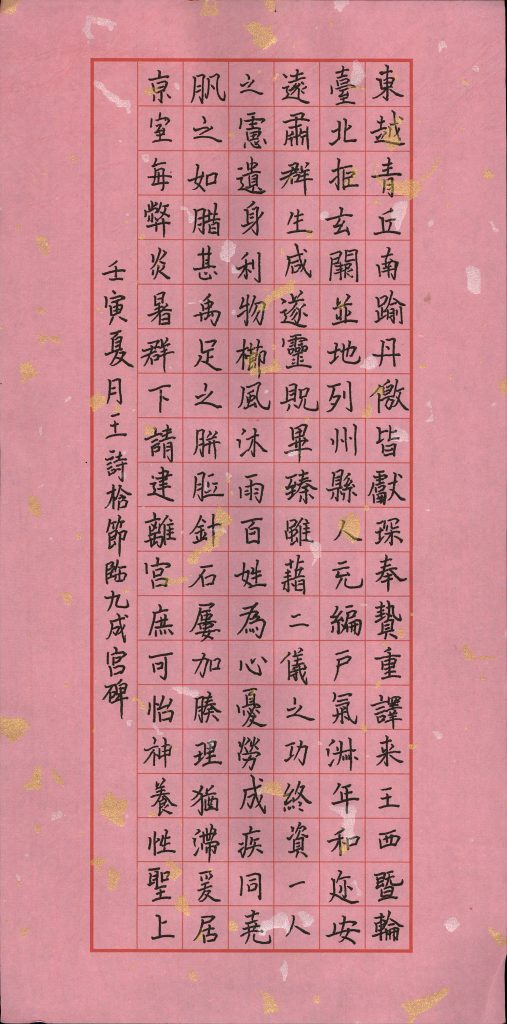 東越青丘南踰丹儌皆獻琛奉贄重譯来王西暨輪
臺北拒玄闕並地列州縣人充編戶氣淑年和迩安
遠肅群生咸遂靈貺畢臻雖藉二儀之功終資一人
之慮遺身利物櫛風沐雨百姓為心憂勞成疾同堯
肌之如腊甚禹足之胼胝針石屢加腠理猶滯爰居
京室每弊炎暑群下請建離宮庶可怡神養性聖上
壬寅夏月王詩節臨九成宮碑